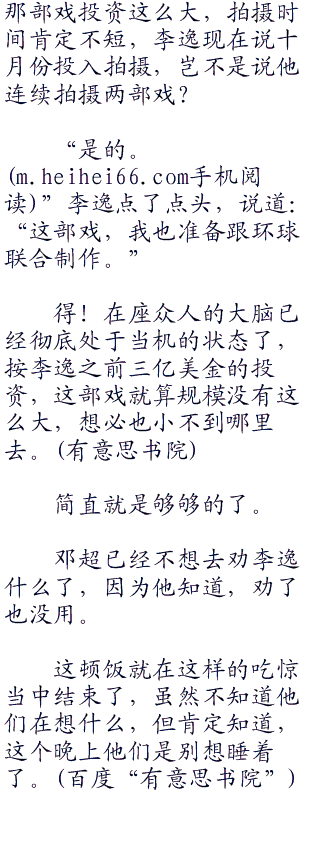 那部戏投资这么大，拍摄时
间肯定不短，李逸现在说十
月份投入拍摄，岂不是说他
连续拍摄两部戏？
“是的。
(m.heihei66.com手机阅
读)”李逸点了点头，说道：
“这部戏，我也准备跟环球
联合制作。”
得！在座众人的大脑已
经彻底处于当机的状态了，
按李逸之前三亿美金的投
资，这部戏就算规模没有这
么大，想必也小不到哪里
去。(有意思书院)
简直就是够够的了。
邓超已经不想去劝李逸
什么了，因为他知道，劝了
也没用。
这顿饭就在这样的吃惊
当中结束了，虽然不知道他
们在想什么，但肯定知道，
这个晚上他们是别想睡着
了。(百度“有意思书院”)